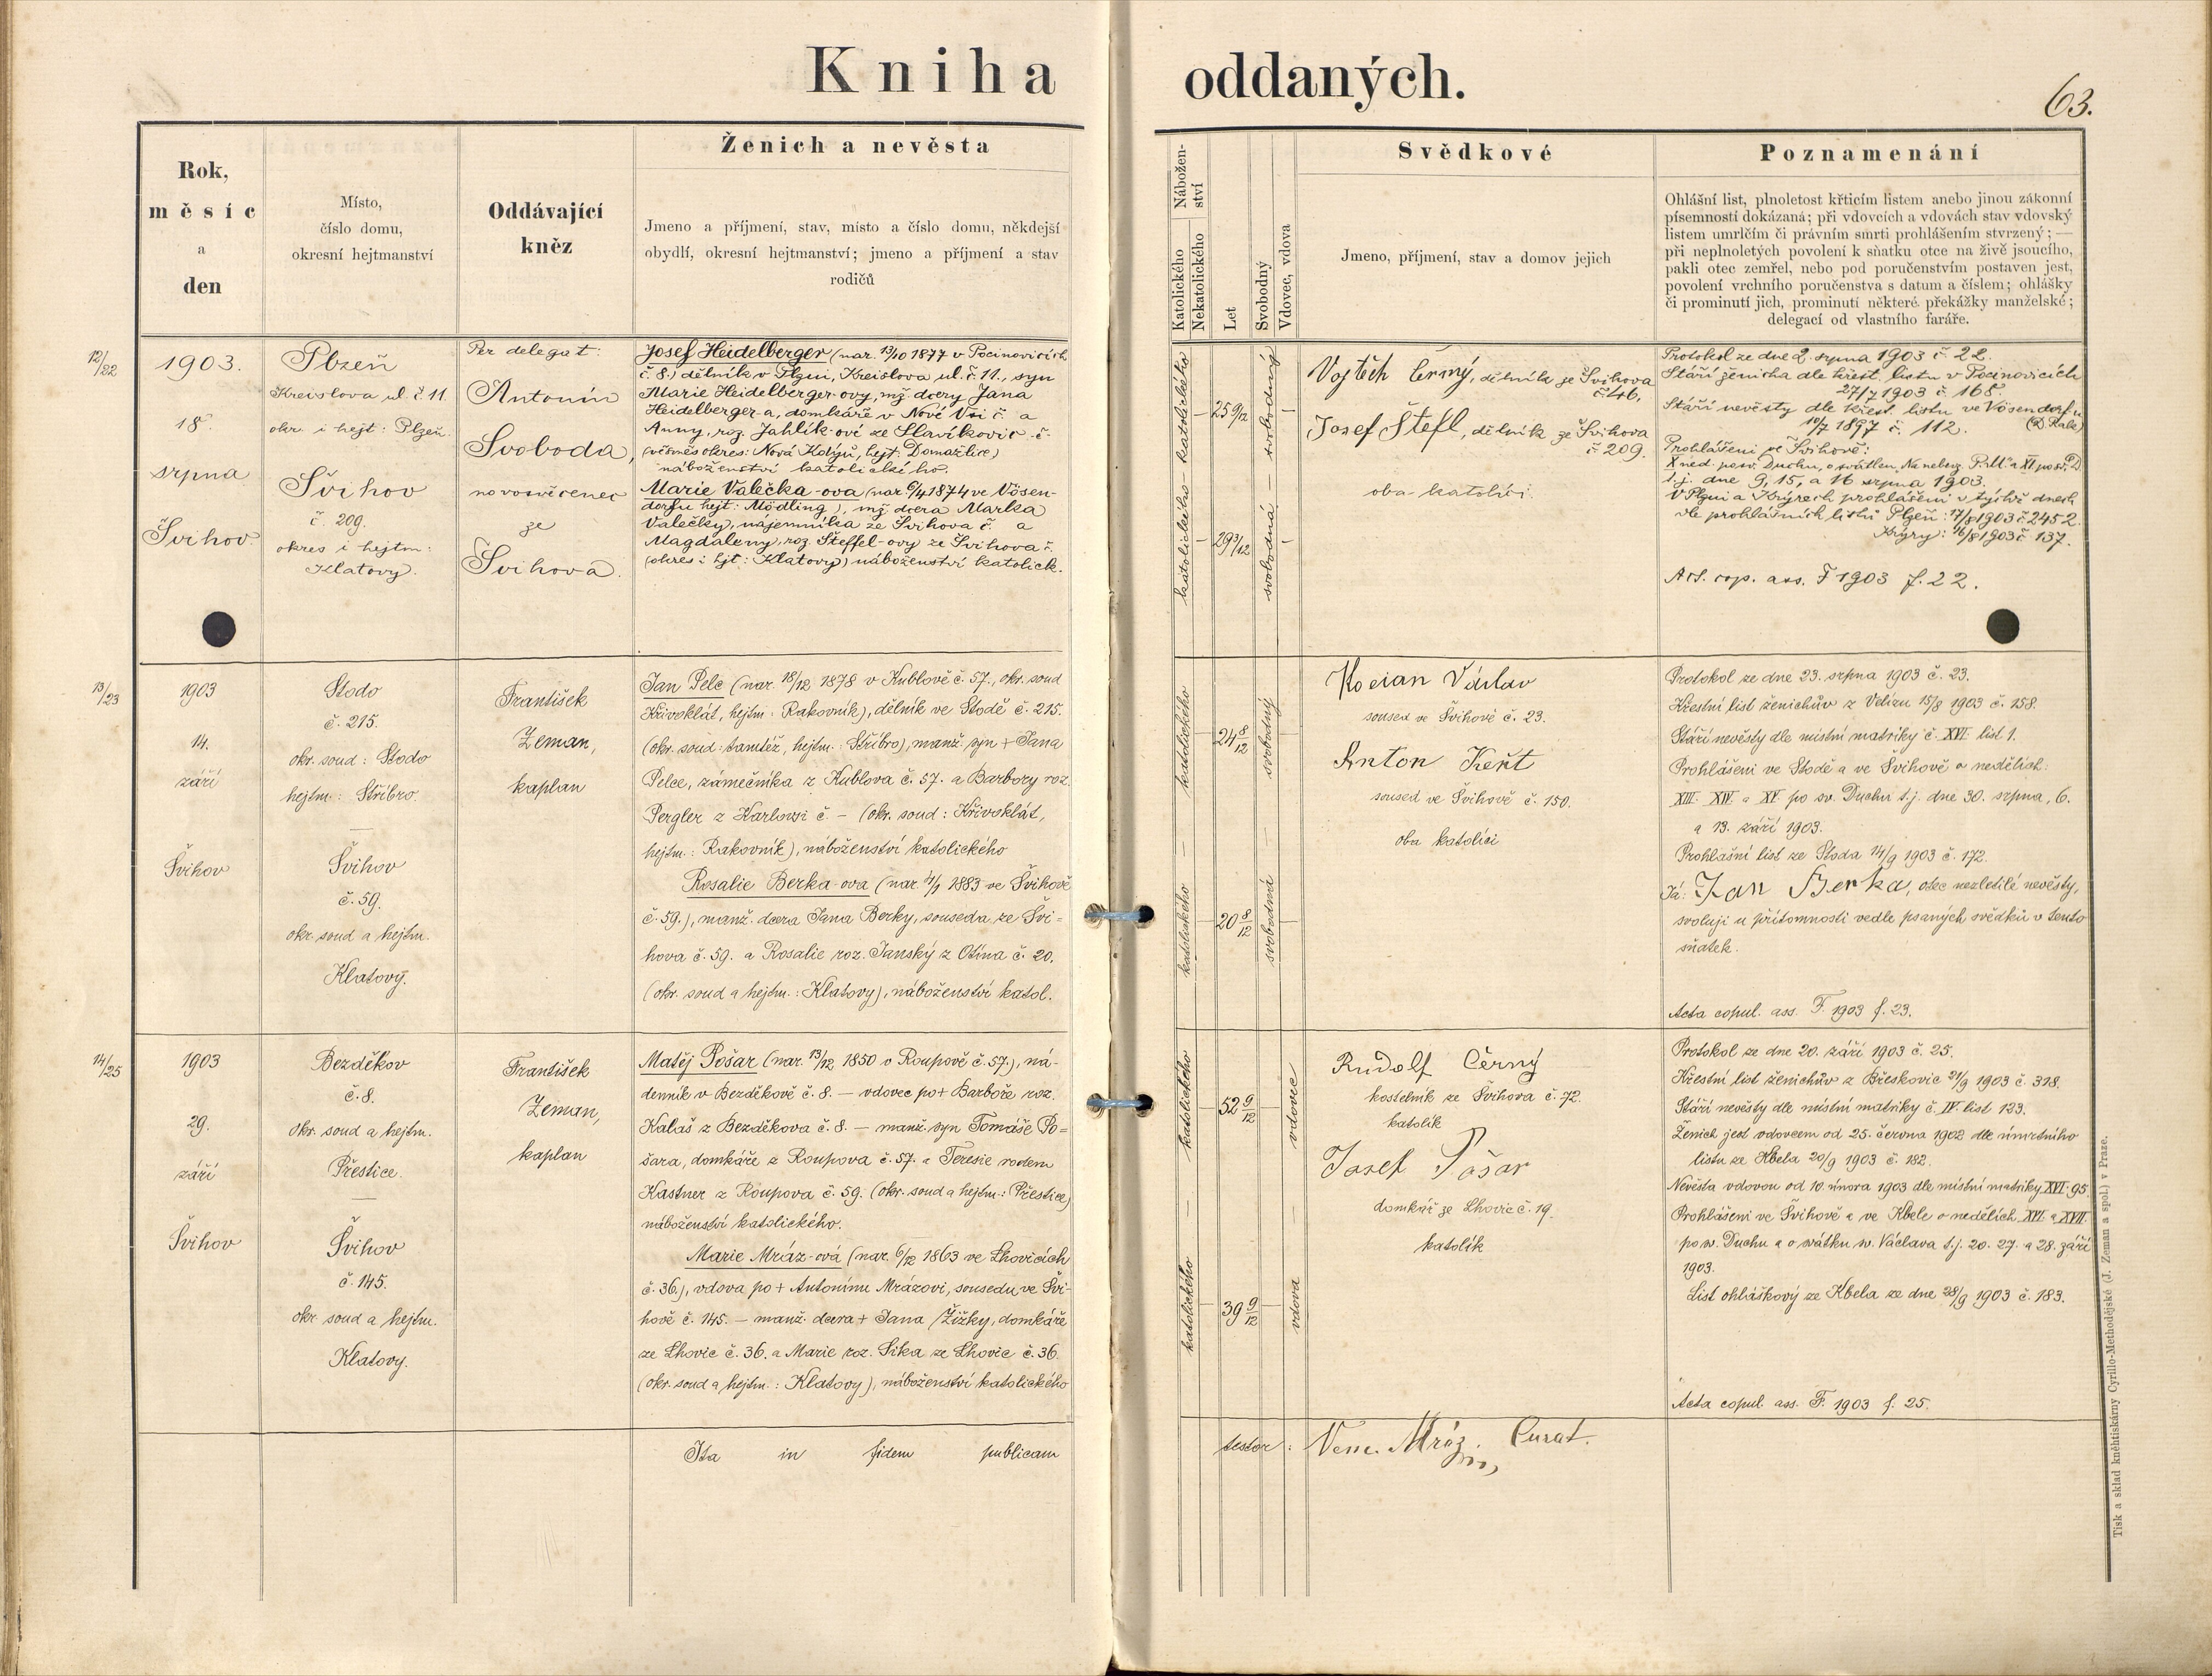 Kniha oddaných.
63.
Rok,
měsíc
a
den
Místo,
číslo domu,
okresní hejtmanství
Oddávající
kněz
Ženich a nevěsta
Jmeno a příjmení, stav, místo a číslo domu, někdejší
obydlí, okresní hejtmanství; jmeno a příjmení a stav
rodičů
Nábožen-
ství
Katolického
Nekatolického
Let
Svobodný
Vdovec, vdova
Svědkové
Jmeno, příjmení, stav a domov jejich
Poznamenání
Ohlášní list, plnoletost křticím listem anebo jinou zákonní
písemností dokázaná; při vdovcích a vdovách stav vdovský
listem umrlčím či právním smrti prohlášením stvrzený; —
při neplnoletých povolení k sňatku otce na živě jsoucího,
pakli otec zemřel, nebo pod poručenstvím postaven jest,
povolení vrchního poručenstva s datum a číslem; ohlášky
či prominutí jich, prominutí některé překážky manželské;
delegací od vlastního faráře.
12/22
1903.
18.
srpna
Švihov.
Plzeň
Kreislova ul. č 11.
okr. i hejt: Plzeň.
Švihov
č. 209.
okres i hejtm:
Klatovy.
Per delegat:
Antonín
Svoboda,
novosvěcenec
ze
Švihova.
Josef Heidelberger (nar. 13/10 1877 v Pocinovicích
č. 8.) dělník v Plzni, Kreislova ul. č 11., syn
Marie Heidelberger-ovy, mž. dcery Jana
Heidelberger-a, domkáře v Nové Vsi č. a
Anny, roz. Jahlík-ové ze Slavíkovic č.
(všesměs okres: Nová Kdyň, hejt: Domažlice)
náboženství katolického.
Marie Valečka-ova (nar. 6/4 1874 ve Vösen-
dorfu hejt: Mödling), mž. dcera Marka
Valečky, nájemníka ze Švihova č. a
Magdaleny, roz. Šteffel-ovy ze Švihova č.
(okres i hjt: Klatovy) náboženství katolick.
katolického
25 9/12
svobodný
katolického
29 3/12
svobodná
Vojtěch Černý, dělník ze Švihova
č. 46,
Josef Štefl, dělník ze Švihova
č 209.
oba katolíci.
Protokol ze dne 2. srpna 1903 č. 22.
Stáří ženicha dle křest. listu v Pocinovicích
27/7 1903 č. 168.
Stáří nevěsty dle křest. listu ve Vösendorfu
10/7 1897 č. 112.
Prohlášeni ve Švihově:
t.j. dne 9, 15, a 16 srpna 1903.
V Plzni a Kýrech prohlášeni v týchž dnech
dle prohlášních listů Plzeň: 17/8 1903 č 2452.
Kýry: 16/8 1903 č. 137.
Act. cop. ass. F 1903 f. 22.
13/23
1903
14.
září
Švihov
Stodo
č. 215.
okr. soud: Stodo
hejtm.: Stříbro.
Švihov
č. 59.
okr. soud a hejtm.
Klatovy.
František
Zeman,
kaplan
Jan Pelc (nar. 18/12 1878 v Kublově č. 57., okr. soud
Křivoklát, hejtm: Rakovník), dělník ve Stodě č. 215.
(okr. soud: tamtéž, hejtm.: Stříbro), manž. syn + Jana
Pelce, zámečníka z Kublova č. 57. a Barbory roz.
Pergler z Karlovsi č. – (okr. soud: Křivoklát,
hejtm.: Rakovník), náboženství katolického
Rosalie Berka-ova (nar. 4/1 1883 ve Švihově
č. 59.), manž. dcera Jana Berky, souseda ze Švi=
hova č. 59. a Rosalie roz. Janský z Otína č. 20.
(okr. soud a hejtm.: Klatovy), náboženství katol.
katolického
24 8/12
svobodný
katolického
20 8/12
svobodná
Kocian Václav
soused ve Švihově č. 23.
Anton Kešt
soused ve Švihově č. 150.
oba katolíci
Protokol ze dne 23. srpna 1903 č. 23.
Křestní list ženichův z Velízu 15/8 1903 č. 158.
Stáří nevěsty dle místní matriky č. XVI. list 1.
Prohlášeni ve Stodě a ve Švihově o nedělích:
XIII. XIV. a XV. po sv. Duchu t.j. dne 30. srpna, 6.
a 13. září 1903.
Prohlášní list ze Stoda 14/9 1903 č. 172.
Já: Jan Berka, otec nezletilé nevěsty,
svoluji u přítomnosti vedle psaných svědků v tento
sňatek.
Acta copul. ass. F. 1903 f. 23.
14/25
1903
29.
září
Švihov
Bezděkov
č. 8.
okr. soud a hejtm.
Přestice.
Švihov
č. 145.
okr. soud a hejtm.
Klatovy.
František
Zeman,
kaplan
Matěj Pošar (nar. 13/12 1850 v Roupově č. 57.), ná-
denník v Bezděkově č. 8. – vdovec po + Barboře roz.
Kalaš z Bezděkova č. 8. – manž. syn Tomáše Po=
šara, domkáře z Roupova č. 57. a Teresie rodem
Kastner z Roupova č. 59. (okr. soud a hejtm.: Přestice)
náboženství katolického.
Marie Mráz-ová (nar. 6/12 1863 ve Lhovicích
č. 36.), vdova po + Antonínu Mrázovi, sousedu ve Švi-
hově č. 145. – manž. dcera + Jana Žižky, domkáře
ze Lhovic č. 36. a Marie roz. Sika ze Lhovic č. 36.
(okr. soud a hejtm.: Klatovy), náboženství katolického
katolického
52 9/12
vdovec
katolického
39 9/12
vdova
Rudolf Černý
kostelník ze Švihova č. 72.
katolík
Josef Pošar
domkář ze Lhovic č. 19.
katolík
Protokol ze dne 20. září 1903 č. 25.
Křestní list ženichův z Břeskovic 21/9 1903 č. 318.
Stáří nevěsty dle místní matriky č. IV. list 123.
Ženich jest vdovcem od 25. června 1902 dle úmrtního
listu ze Kbela 20/9 1903 č. 182.
Nevěsta vdovou od 10. února 1903 dle místní matriky XVI. 95.
Prohlášeni ve Švihově a ve Kbele o nedělích XVI. a XVII.
po sv. Duchu a o svátku sv. Václava t.j. 20. 27. a 28. září
1903.
List ohláškový ze Kbela ze dne 28/9 1903 č. 183.
Acta copul. ass. F. 1903 f. 25.
Ita in fidem publicam
testor: Venc. Mráz. Curat.
Tisk a sklad kněhtiskárny Cyrillo-Methodějské (J. Zeman a spol.) v Praze.